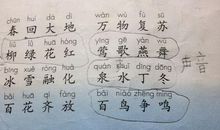 chūn huí dà dì wàn wù fù sū
春回大地 万物复苏
liǔ lǜ huā hóng yīng gē yàn wǔ
柳绿花红 莺歌燕舞
声音
bīng xuě róng huà quán shuǐ dīng dōng
冰雪融化 泉水丁冬
bǎi huā qí fàng bǎi niǎo zhēng míng
百花齐放 百鸟争鸣